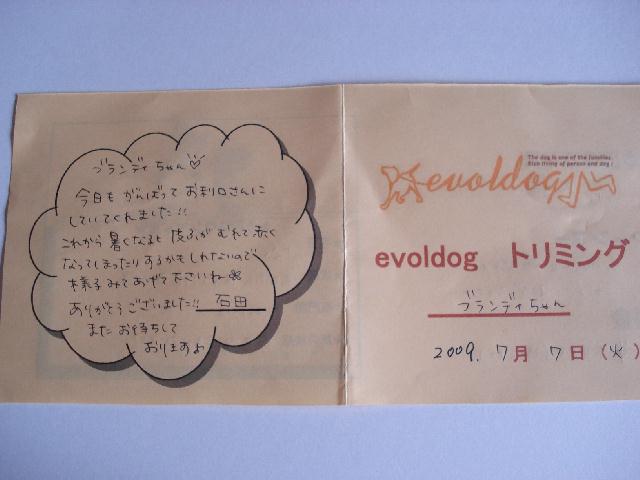 ブランディちゃん♡
今日も がんばって お利口さんに
していてくれました!!
これから 暑くなると 皮ふが むれて 赤く
なってしまったり するかもしれないので
様子みてあげて下さいね
ありがとうございました!! 石田
また お待ちして
おりますよ
The dog is one of the families.
Rich living of person and dog!
evoldog
evoldog トリミング
ブランディちゃん
2009. 7月 7日(火)